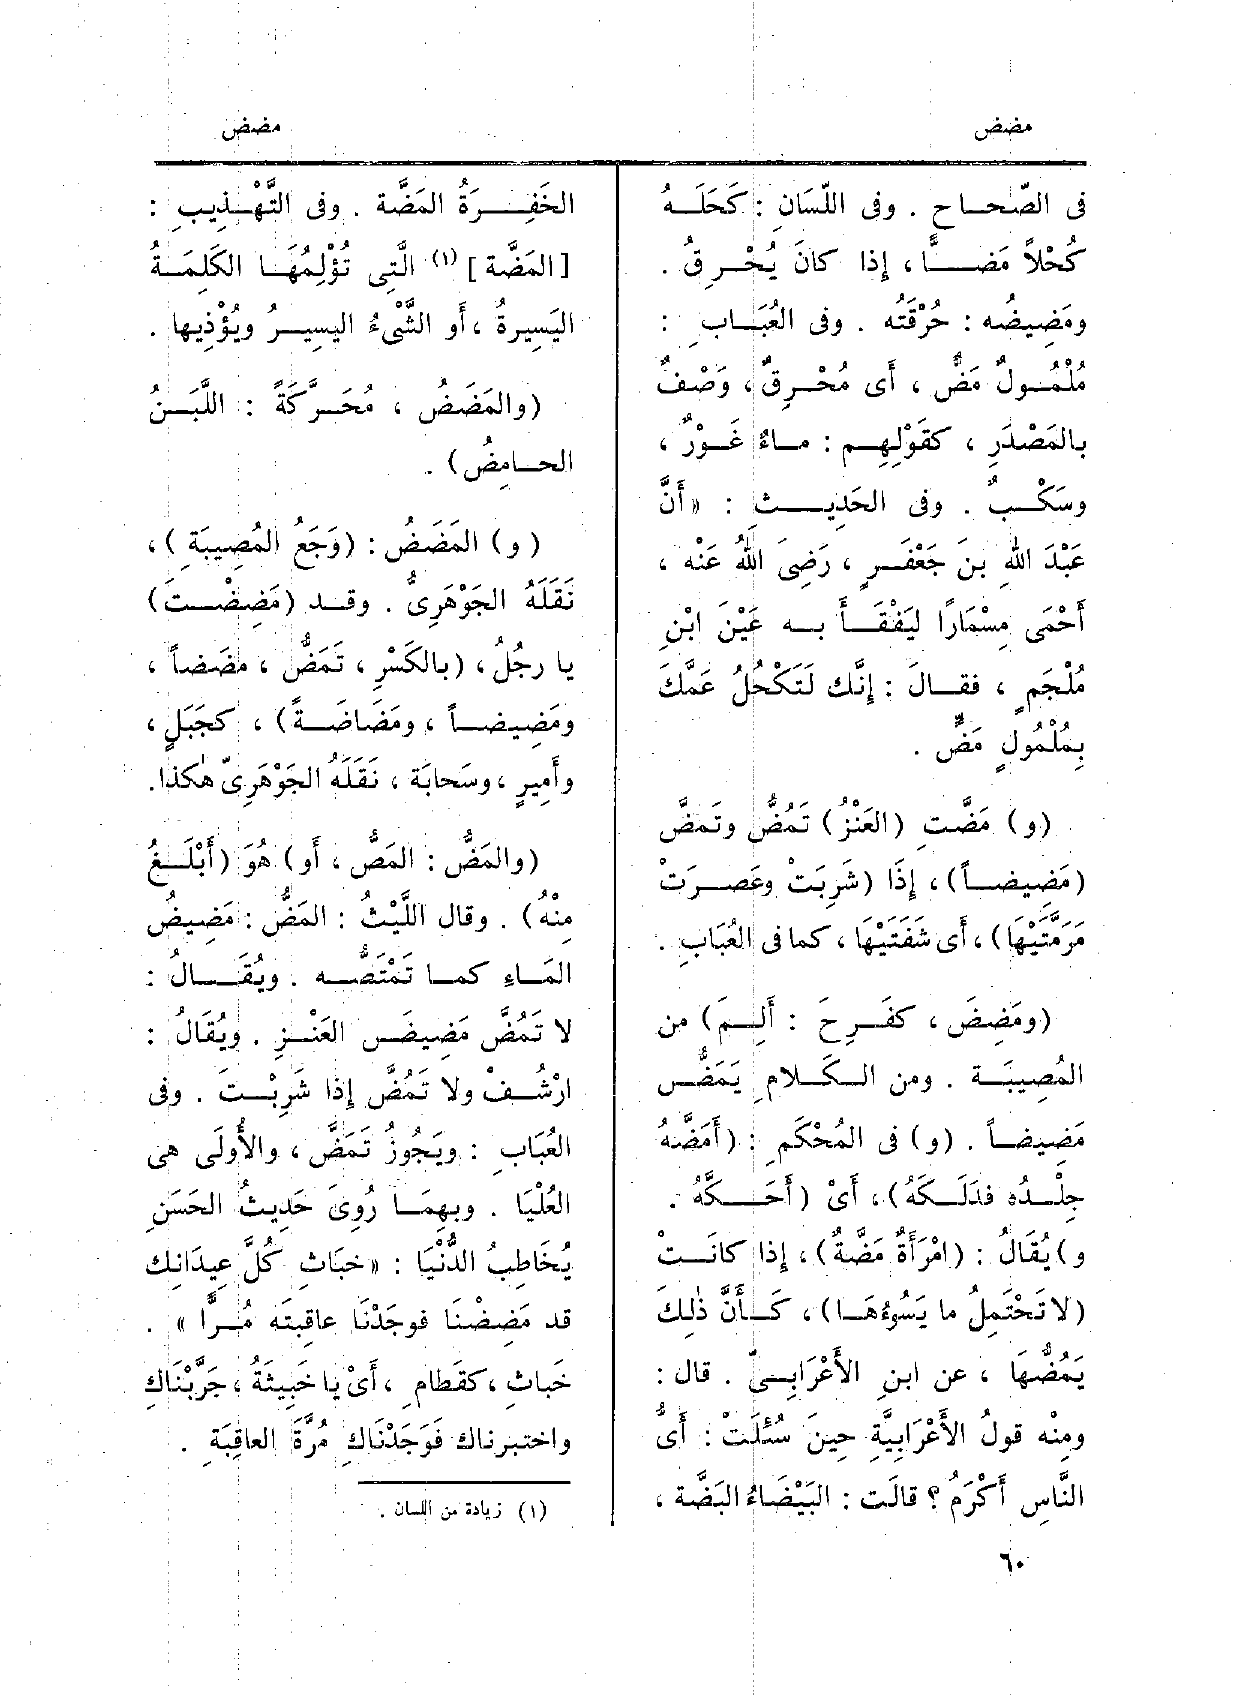 مضض
مضض
فى الصّحاح . وفى اللّسَانِ : كَحَلَهُ
كُحْلاً مَضًّا ، إِذا كانَ يُحْرِقُ .
ومَضِيضُه : حُرْقَتُه . وفى العُبَابِ :
مُلْمُولٌ مَضٌّ ، أَى مُحْرِقٌ ، وَصْفٌ
بالمَصْدَرِ ، كقَوْلِهِم : ماءٌ غَوْرٌ ،
وسَكْبٌ . وفى الحَدِيثِ : « أَنَّ
عَبْدَ اللهِ بنَ جَعْفَرٍ ، رَضِىَ اللهُ عَنْه ،
أَحْمَى مِسْمَارًا لِيَفْقَأَ به عَيْنَ ابْنِ
مُلْجَمٍ ، فقالَ : إِنَّك لَتَكْحُلُ عَمَّكَ
بِمُلْمُولٍ مَضٍّ .
(و) مَضَّت (العَنْزُ) تَمُضُّ وتَمَضُّ
(مَضِيضاً) ، إِذَا (شَرِبَتْ وعَصرَتْ
مَرَمَّتَيْهَا) ، أَى شَفَتَيْهَا ، كما فى العُبَابِ .
(ومَضِضَ ، كفَرِحَ : أَلِمَ) من
المُصِيبَة . ومن الكَلامِ يَمَضُّ
مَضِيضاً . (و) فى المُحْكَمِ : (أَمَضَّهُ
جِلْدُه فدَلَكَهُ) ، أَىْ (أَحَكَّهُ .
و) يُقَالُ : (امْرَأَةٌ مَضَّةٌ) ، إِذا كانَتْ
(لا تَحْتَمِلُ ما يَسُوءُهَا) ، كأَنَّ ذٰلِكَ
يَمُضُّهَا ، عن ابنِ الأَعْرَابِىِّ . قال :
ومِنْه قولُ الأَعْرَابِيَّةِ حِينَ سُئِلَتْ : أَىُّ
النَّاسِ أَكْرَمُ ؟ قالَت : البَيْضَاءُ البَضَّة ،
الخَفِرَةُ المَضَّة . وفى التَّهْذِيبِ :
[المَضَّة] (١) الَّتِى تُؤْلِمُهَا الكَلِمَةُ
اليَسِيرةُ ، أَو الشَّىْءُ اليسِيرُ ويُؤْذِيها .
(والمَضَضُ ، مُحَرَّكَةً : اللَّبَنُ
الحامِضُ) .
(و) المَضَضُ : (وَجَعُ المُصِيبَةِ) ،
نَقَلَهُ الجَوْهَرِىُّ . وقد (مَضِضْتَ)
يا رجُلُ ، (بالكَسْرِ ، تَمَضُّ ، مَضَضاً ،
ومَضِيضاً ، ومَضَاضَةً) ، كجَبَلٍ ،
وأَمِيرٍ ، وسَحابَة ، نَقَلَهُ الجَوْهَرِىّ هٰكذا.
(والمَضُّ : المَصُّ ، أَو) هُوَ (أَبْلَغُ
مِنْهُ) . وقال اللَّيْثُ : المَضُّ : مَضِيضُ
المَاءِ كما تَمْتَصُّه . ويُقَالُ :
لا تَمُضَّ مَضِيضَ العَنْزِ . ويُقَالُ :
ارْشُفْ ولا تَمُضَّ إِذا شَرِبْتَ . وفى
العُبَابِ : ويَجُوزُ تَمَضَّ ، والأُولَى هى
العُلْيَا . وبِهِمَا رُوِىَ حَدِيثُ الحَسَنِ
يُخَاطِبُ الدُّنْيَا : « خبَاثِ كُلَّ عِيدَانِك
قد مَضِضْنَا فوجَدْنَا عاقبتَه مُرًّا » .
خَبَاثِ ، كقَطامِ ، أَىْ يا خَبِيثَةُ ، جَرَّبْنَاكِ
واختبرناك فَوَجَدْنَاكِ مُرَّةَ العاقِبَةِ .
(١) زيادة من اللسان .
٦٠